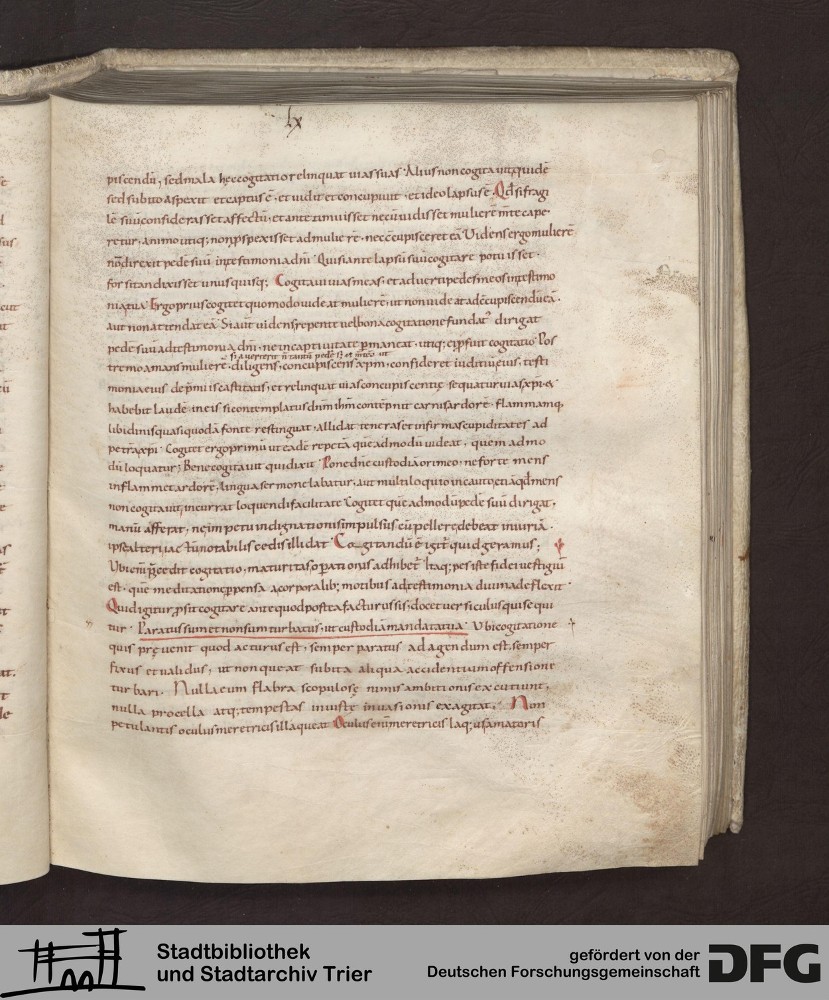 lx
piscendū, sed mala hęc cogitatio relinquat uias suas. Alius non cogitauit, quidē
sed subito aspexit et captus ē. et uidit et concupiuit. et ideo lapsus ē. Qđ si fragi
lē suū considerasset affectū, et ante timuisset ne cū uidisset mulierē mente cape
retur. animo utiq; non pspexisset ad mulierē. nec ccupisceret eā. Uidens ergo mulierē
nō direxit pedē suū in testimonia dn̄i. Qui si ante lapsū suū cogitare potuisset.
forsitan dixisset unusquisq; Cogitaui uias meas. et aduerti pedes meos in testimo
nia tua. Ergo prius cogitet quomodo uideat mulierē. ut non uideat ad cupiscendū eā.
aut non attendat eā. Si aut uidens repente uel bona cogitatione fundat dirigat
pedē suū ad testimonia dn̄i. ne in captiuitate pmaneat. utiq; cū pfuit cogitatio. Pos
tremo amans mulierē. diligens. concupiscens xpm. consideret iuditiū eius, testi
monia eius de pmiis castitatis, et relinquat uias concupiscentię. sequatur uias xpi. &
habebit laudē in eis si contemplatus dnm ihm contēpnit carnis ardorē. flammamq,
libidinis quasi quodā fonte restinguat. allidat teneras et infirmas cupiditates ad
petrā xpi. Cogitet ergo primū ut eadē repetā quēadmodū uideat, quem admo
dū loquatur; Bene cogitauit qui dixit. Pone dn̄e custodiā ori meo. ne forte mens
inflammet ardorē, lingua sermone labatur. aut multiloquio incauto etiā qđ mens
non cogitauit, incurrat loquendi facilitate. Cogitet quē admodū pedē suū dirigat,
manū afferat, ne impetu indignationis impulsus cū pellere debeat iniuriā.
ipse alteri iactū notabilis cędis illidat. Cogitandū ē igit quid geramus;
Ubi enī pcedit cogitatio, maturitas opationis adhibet. Itaq; pes iste fidei uestigiū
est. que meditatione ppensa a corporalib; motibus ad testimonia diuina deflexit.
Quid igitur psit cogitare ante quod postea facturus sis, docet uersiculus qui sequi
tur. Paratus sum et non sum turbatus. ut custodiā mandata tua. Ubi cogitatione
quis pręuenit quod acturus est. semper paratus ad agendum est. semper
fixus et ualidus, ut non queat subita aliqua accidentium offensione
turbari. Nulla eum flabra scopulosę nimis ambitionis excutiunt,
nulla procella atq; tempestas iniustę inuasionis exagitat. Non
petulantis oculus meretricis illaqueat. Oculus enī meretricis laq; us amatoris
Stadtbibliothek
und Stadtarchiv Trier
gefördert von der
Deutschen Forschungsgemeinschaft
DFG